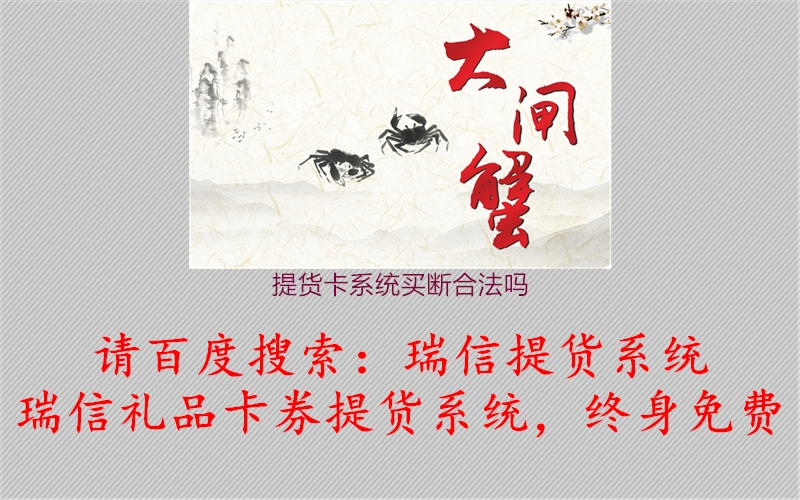 大闸蟹
提货卡系统买断合法吗
请百度搜索：瑞信提货系统
瑞信礼品卡券提货系统，终身免费